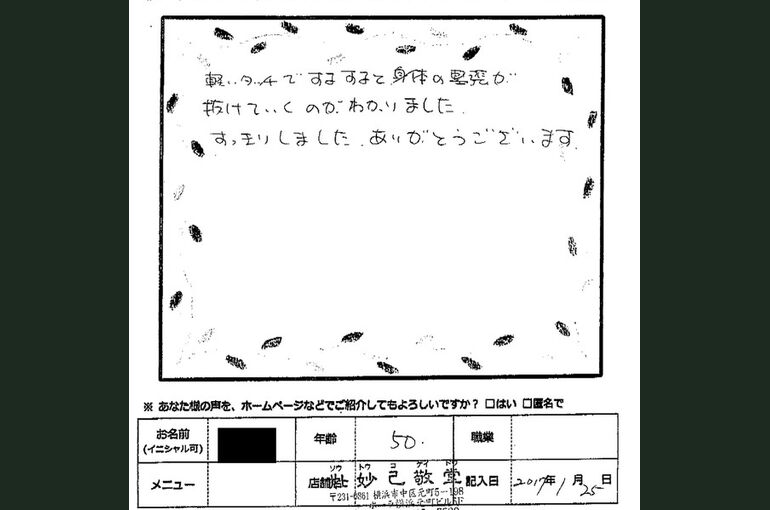 軽いタッチでするすると身体の悪露が
抜けていくのがわかりました.
すっきりしました.ありがとうございます.
※ あなた様の声を、ホームページなどでご紹介してもよろしいですか? □はい □匿名で
お名前
(イニシャル可)
年齢
50.
職業
メニュー
店舗
ソウ トウ コ ケイ ドウ
妙己敬堂
〒231-0861 横浜市中区元町5-198
記入日
2017年1月25日